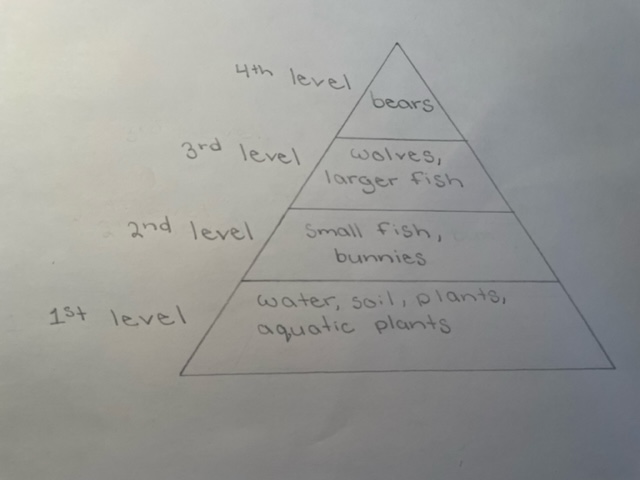 4th level
bears
3rd level
wolves,
larger fish
2nd level
small fish,
bunnies
1st level
water, soil, plants,
aquatic plants